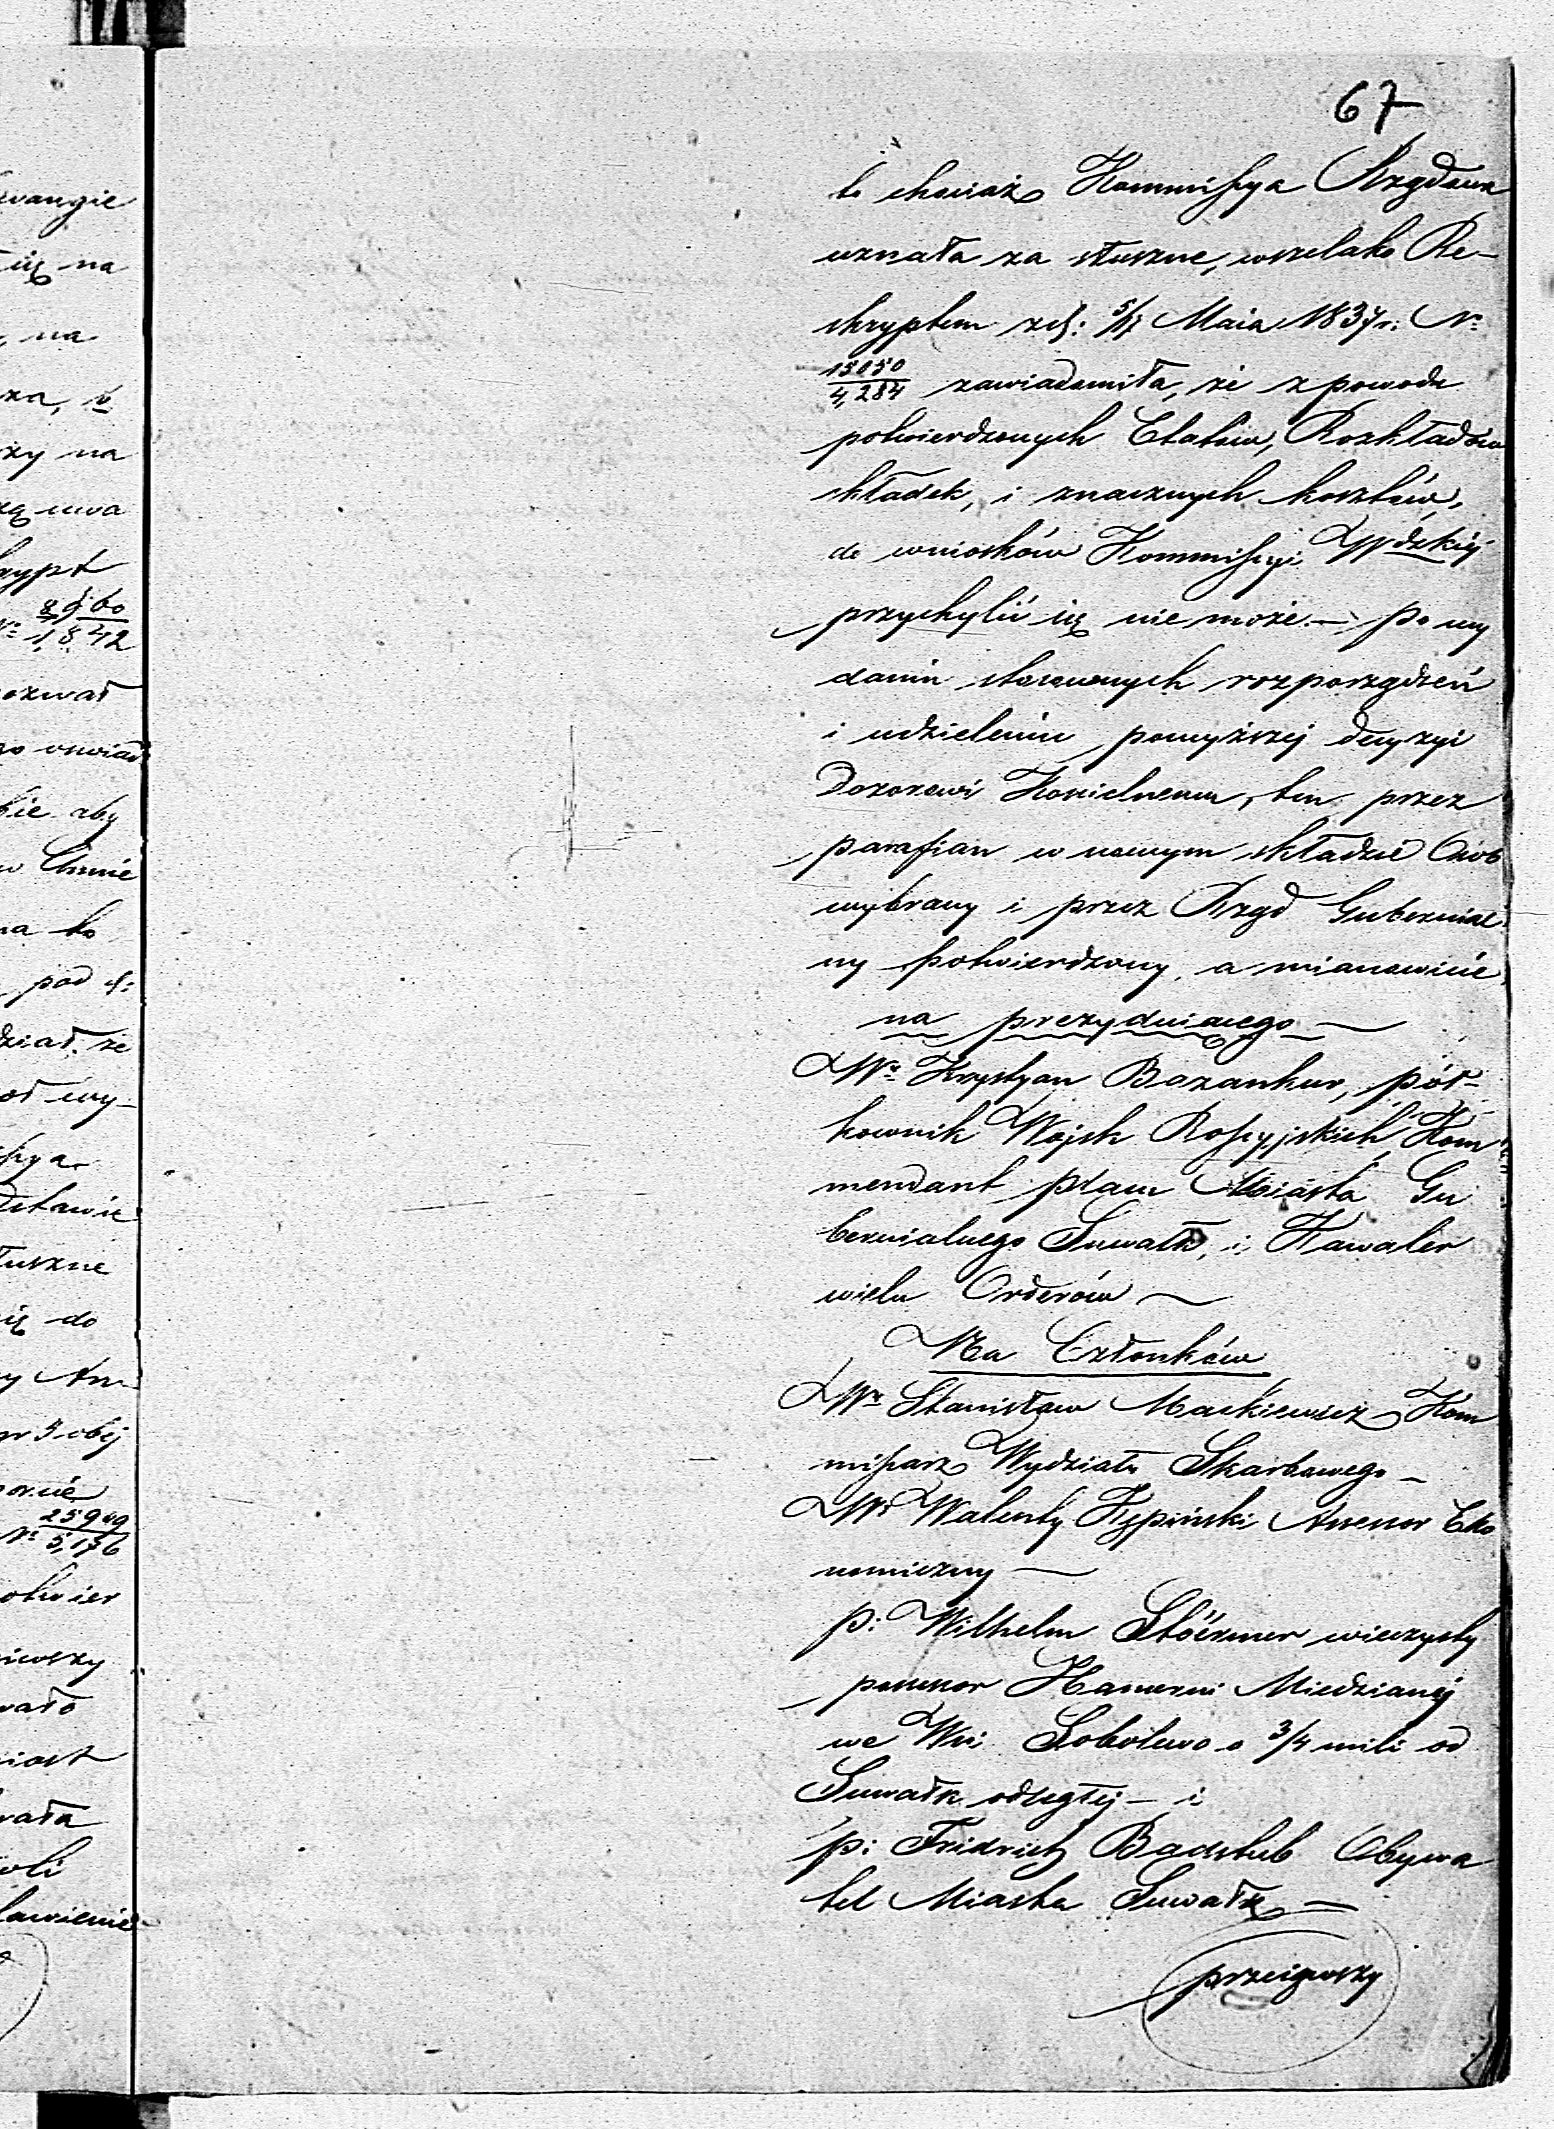 67
to chociaż Kommissya Rządowa
uznała za słuszne, wszelako Re-
skryptem z d: 5/17 Maia 1837 r. Nº
15050/4,284 zawiadomiła, że z powodu
potwierdzonych Etatów, Rozkładów
składek, i znacznych kosztów,
do wniosków Kommissyi Wdzkiéj
przychylić się nie może. — po wy
daniu stosownych rozporządzeń
i udzieleniu powyższéj decyzyi
Dozorowi Kościelnemu, ten przez
parafian w nowym składzie Osób
wybrany i przez Rząd Gubernial
ny potwierdzony, a mianowicie
na prezyduiącego —
Wº Krystyan Bozankur, pół-
kownik Wojsk Rossyjskich Kom
mendant placu Miasta Gu
bernialnego Suwałk, i Kawaler
wielu Orderów —
Na Członków
Wº Stanisław Mackiewicz Kom
missarz Wydziału Skarbowego —
Wº Walenty Kępiński Assessor Eko
nomiczny —
p: Wilhelm Stöermer wieczysty
possessor Hamerni Miedzianéj
we Wsi Sobolewo o 3/4 mili od
Suwałk odległéj — i
p: Fridrich Badstub Obywa
tel Miasta Suwałk —
przeiąwszy
wangie
się na
na
rzy na
rypt
8960
1,842
ozwał
bie aby
na to
pod d:
dział że
od wy-
ssya
stawie
łuszne
się do
25949
Nº 5,136
otwier
wszy
wało
miast
wała